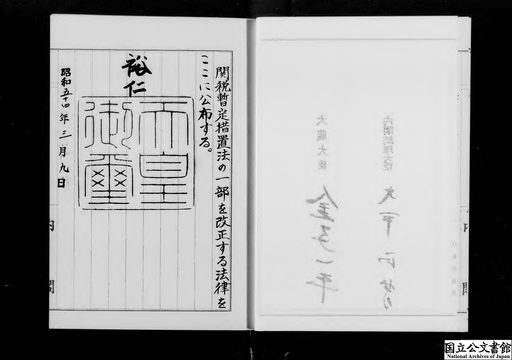 関税暫定措置法の一部を改正する法律を
ここに公布する。
裕仁
天皇
御璽
昭和五十四年三月九日
内閣
内閣総理大臣 大平正芳
大蔵大臣 金子一平
内閣
国立公文書館
National Archives of Japan